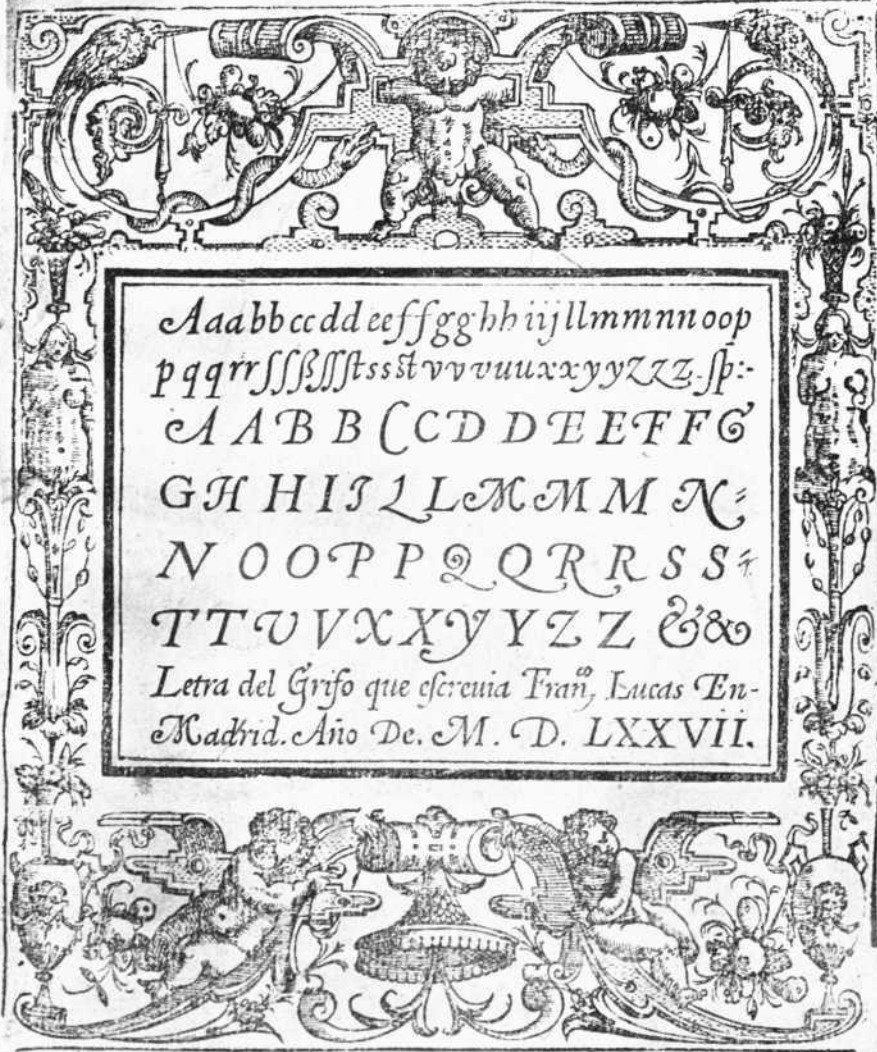 Aaabbccddeeffgghhiijllmmnnoop
pqqrrſſſßſſſtssstvvvuuxxyyzzz.ſp:-
AABBCCDDEEFFG
GHHIJLLMMMN
NOOPPQQRRSS
TTVVXXYYZZ&&
Letra del Grifo que eſcreuia Franᵒ, Lucas En-
Madrid. Año De. M. D. LXXVII.